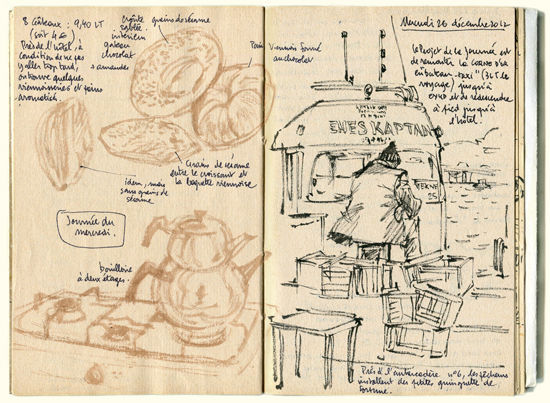 8 gâteaux : 9,40 LT
(soit 4€)
Près de l'hôtel, à
condition de ne pas
y aller trop tard,
on trouve quelques
viennoiseries et pains
aromatisés.
croûte
sablée
intérieur
gâteau
chocolat
+ amandes
grains de sésame
Pain Viennois fourré
au chocolat
Grains de sésame
entre le croissant et
la baguette viennoise
idem, mais
sans grains de
sésame
Journée du
mercredi.
bouilloire
à deux étages.
Mercredi 26 décembre 2012
Le projet de la journée est
de remonter la Corne d'Or
en bateau-taxi (3LT le
voyage) jusqu'à
et de redescendre
à pied jusqu'à
l'hôtel.
ENES KAPTAN
Près de l'embarcadère n°6, les pêcheurs
installent des petites guinguettes de
fortune.